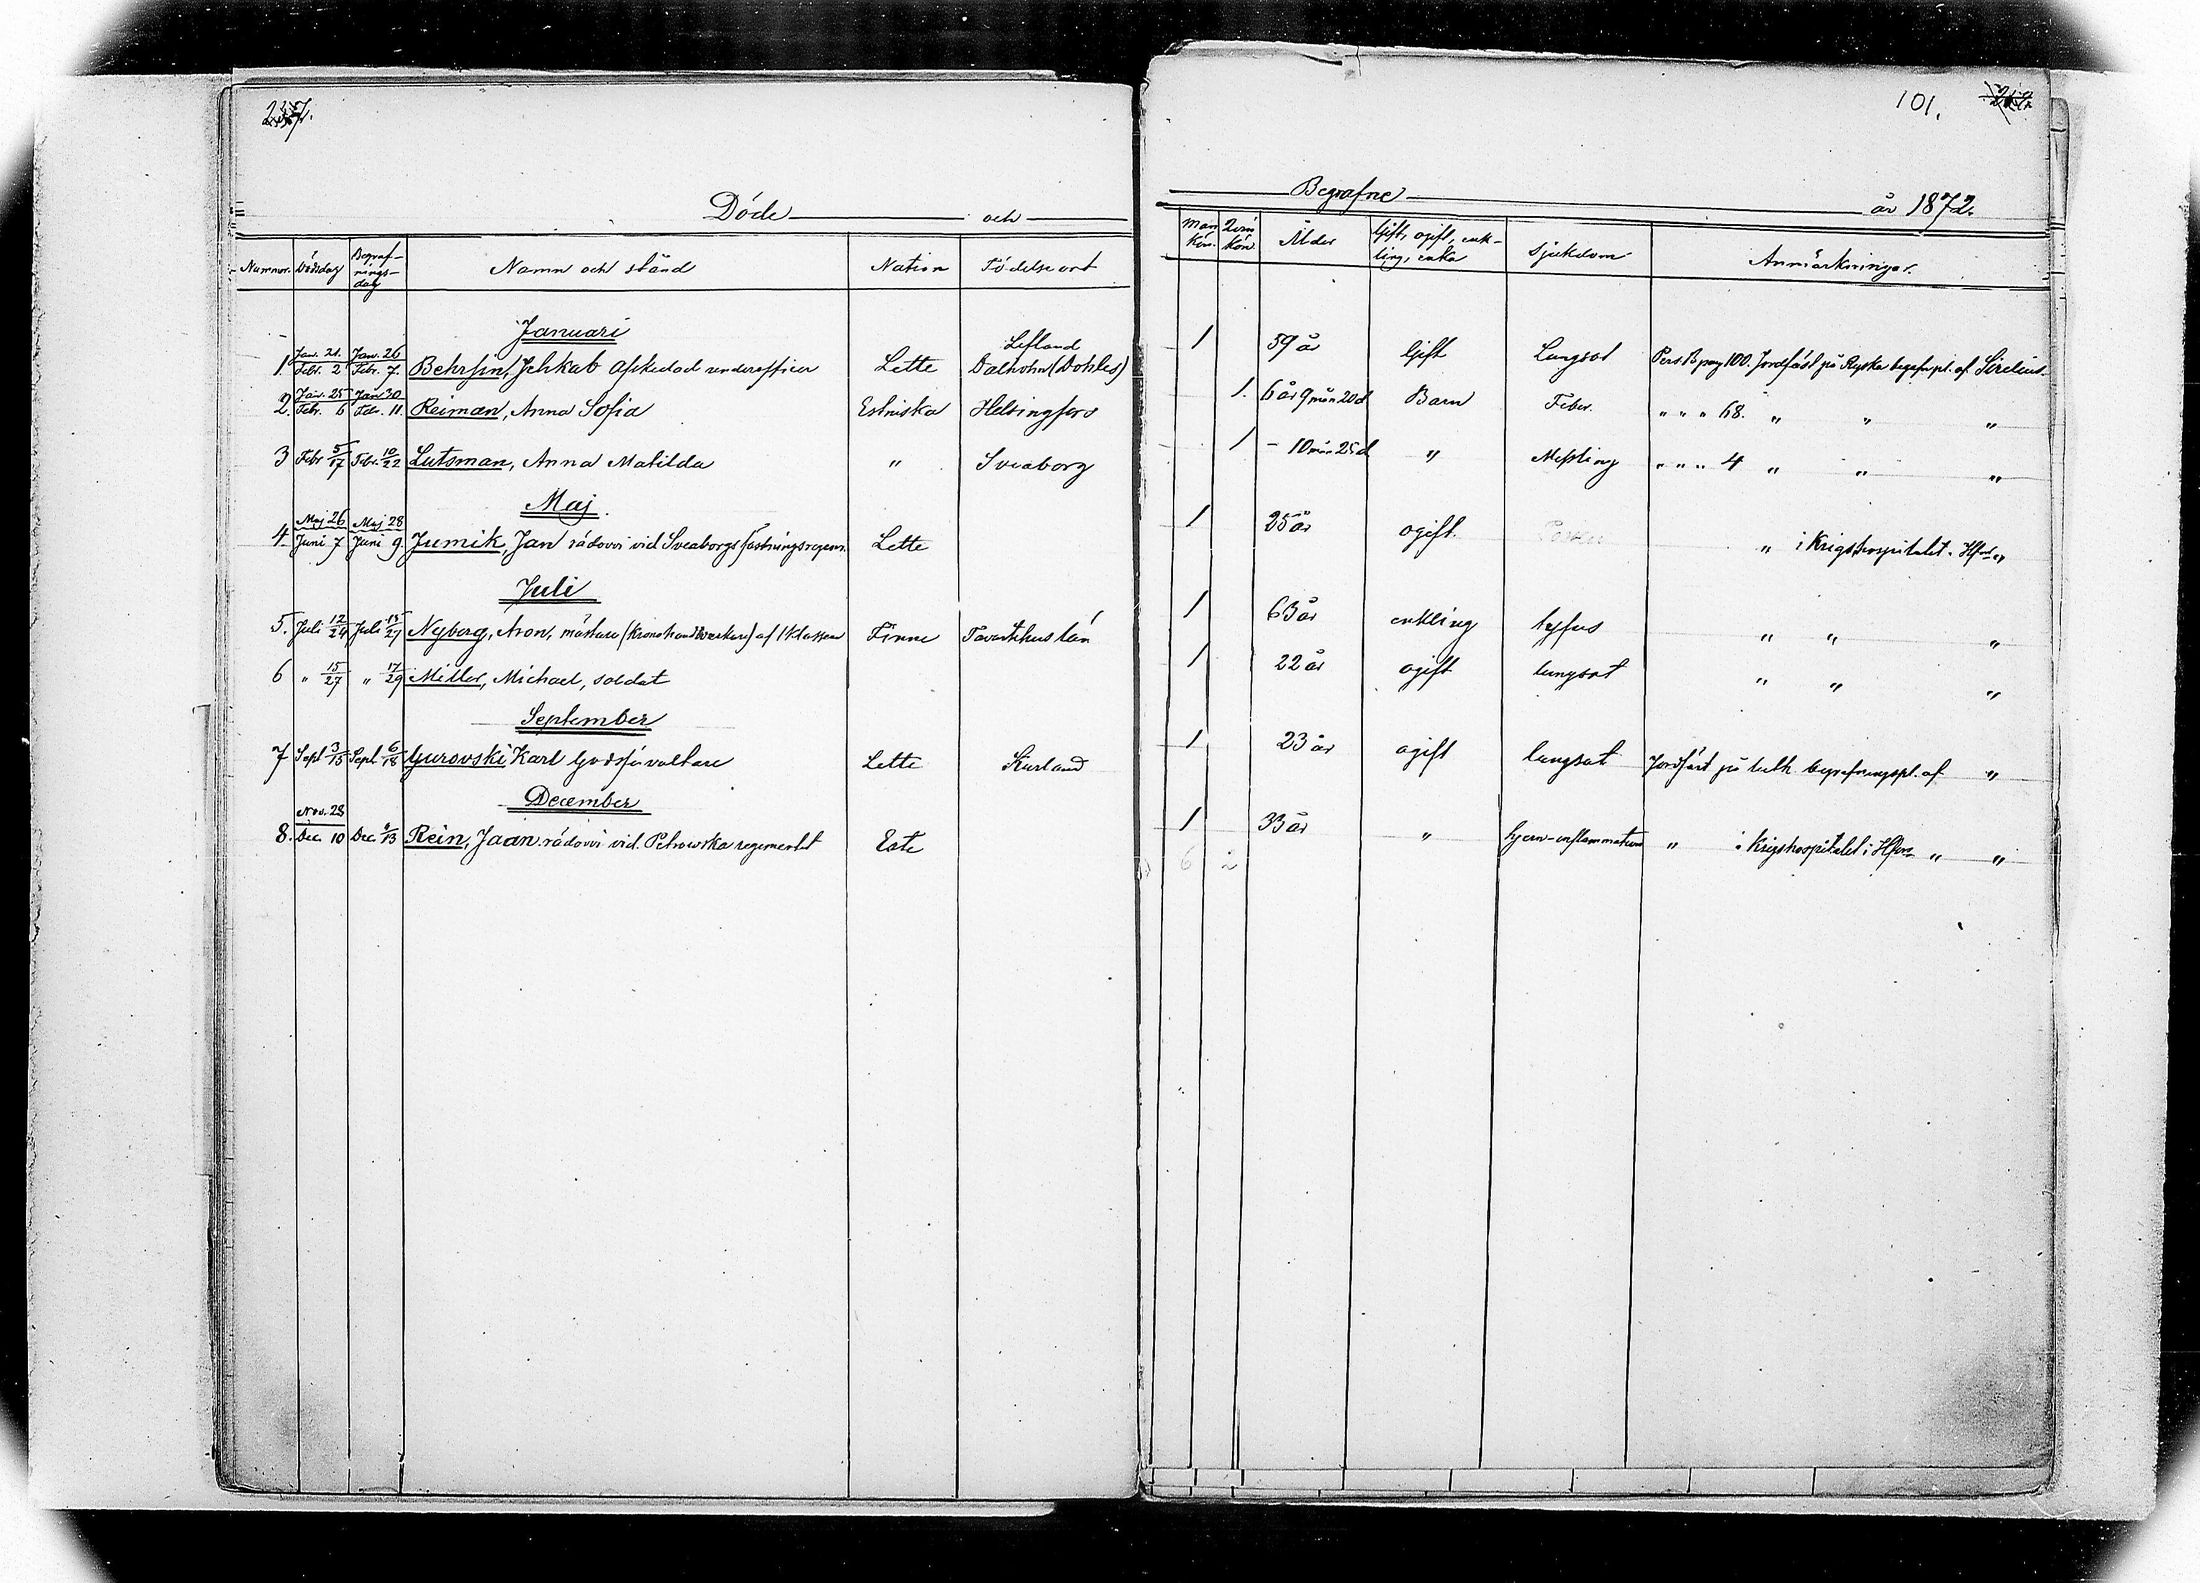 101.
Döde och Begrafne år 1872.
Nummer. Dödsdag Begraf-nings-dag Namn och stånd Nation Födelse ort Man kön. Qvin kön. Ålder Gift, ogift, enk-ling, enka Sjukdom Anmärkningar.
Januari
1 Jan. 21. Febr. 2 Jan. 26 Febr. 7. Behrsin, Jehkab Afskedad underofficer Lette Lefland Dalhohn (Dohles) 1 59 år Gift Lungsot Pers. B pag 100. Jordfäst på Ryska begrafn.pl. af Sirelius.
2. Jan. 25 Febr. 6 Jan 30 Febr. 11. Reiman, Anna Sofia Estniska Helsingfors 1. 6 år 9 mån 20 d Barn Feber. " " " 68. " " "
3 Febr 5/17 Febr. 10/22 Lutsman, Anna Matilda " Sveaborg 1 - 10 mån 25 d " Messling " " " 4 " " "
Maj.
4. Maj 26 Juni 7 Maj 28 Juni 9. Jumik, Jan rådovoi vid Sveaborgs fästningsregem. Lette 1 25 år ogift. " i Krigshospitalet i Hfors "
Juli
5. Juli 12/24 Juli 15/27 Nyberg, Aron, mästare (Kronohandtverkare) af 1 klassen Finne Tavasthus län 1 63 år enkling tyfus " " "
6 " 15/27 " 17/29 Miller, Michael, soldat 1 22 år ogift lungsot " " "
September
7 Sept 3/15 Sept 6/18 Gurovski Karl Godsförvaltare Lette Kurland 1 23 år ogift lungsot Jordfäst på luth. begrafningspl. af "
December
8. Nov. 28 Dec. 10 Dec. 1/13 Rein, Jaan rådovoi vid Petrowska regementet Este 1 33 år " hjern-inflammation " i Krigshospitalet i Hfors " "
6 2